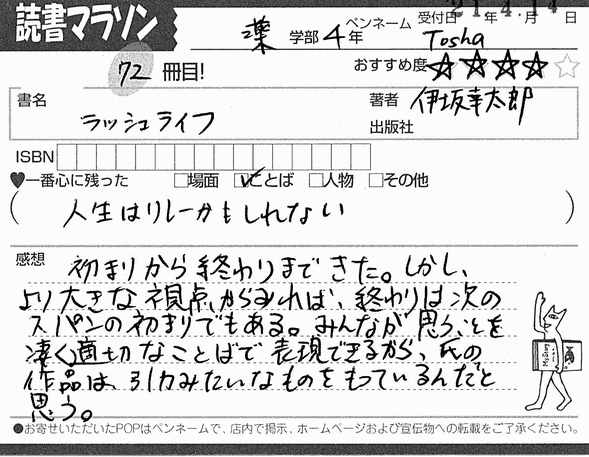 読書マラソン
薬 学部 4年 ペンネーム Tosha 受付日 21年4月14日
72 冊目! おすすめ度 ★★★★☆
書名 ラッシュライフ 著者 伊坂幸太郎
出版社
ISBN
♥一番心に残った □場面 ☑ことば □人物 □その他
(人生はリレーかもしれない)
感想 初まりから終わりまできた。しかし、
より大きな視点からみれば、終わりは次の
スパンの初まりでもある。みんなが思うことを
凄く適切なことばで表現できるから、氏の
作品は、引力みたいなものをもっているんだと
思う。
●お寄せいただいたPOPはペンネームで、店内で掲示、ホームページおよび宣伝物への転載をご了承ください。